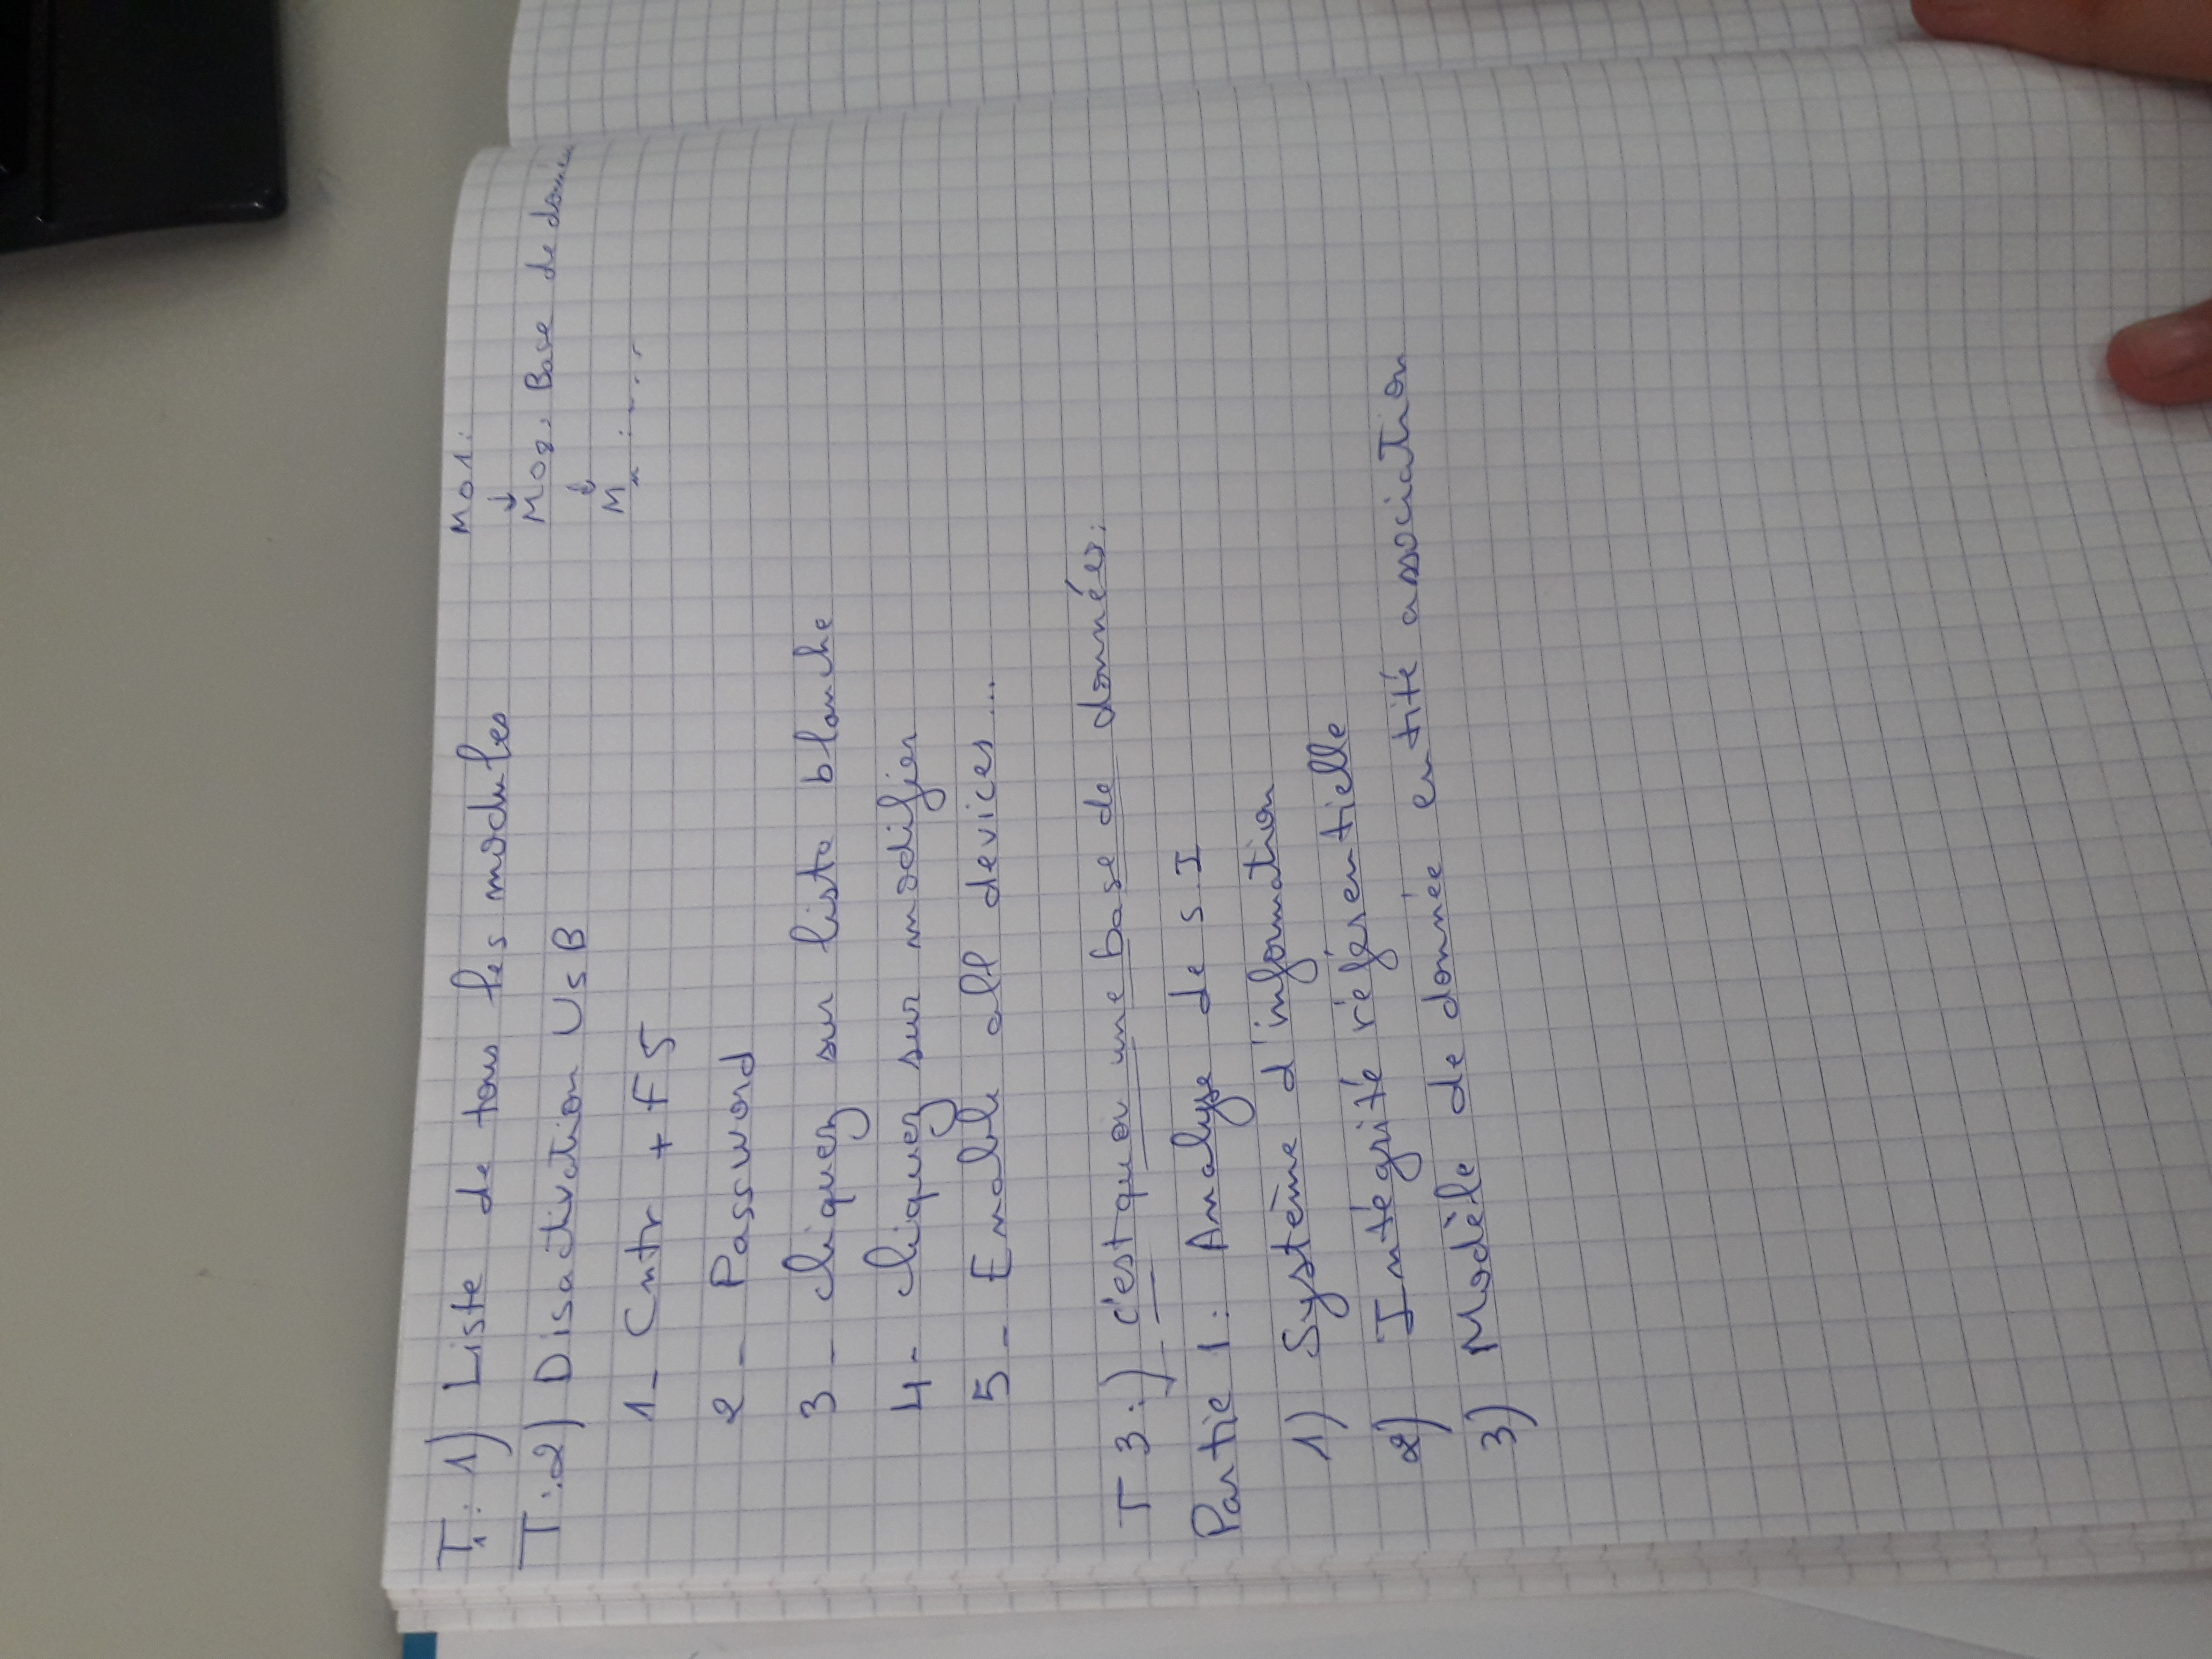 T1: 1) Liste de tous les modules
T:2) Disactivation USB
1- Cntr + F5
2- Password
3- cliquez sur liste blanche
4- cliquez sur modifier
5- Enable all devices...
T3:) c'est quoi une base de données:
Partie 1: Analyse de S.I
1) Système d'information
2) Intégrité référentielle
3) Modèle de donnée entité association
M01:
↓
M02: Base de
↓
Mn : ....